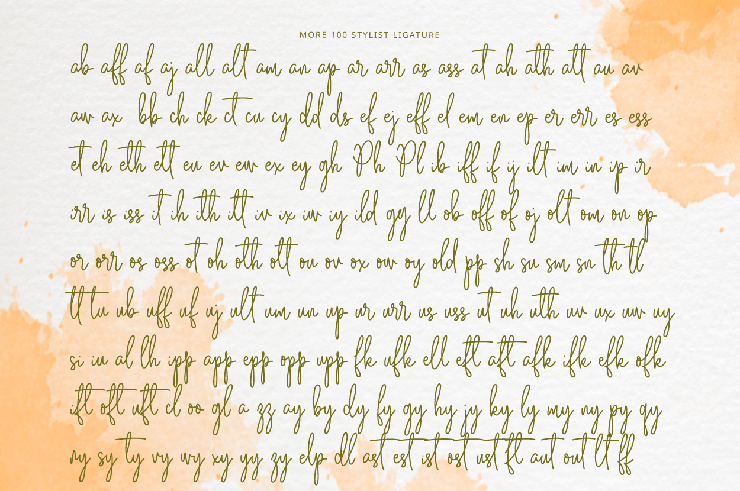 MORE 100 STYLIST LIGATURE
ab aff af aj all alt am an ap ar arr as ass at ah ath att au av
aw ax bb ch ck ct cu cy dd ds ef ej eff el em en ep er err es ess
et eh eth ett eu ev ew ex ey gh Ph Pl ib iff if ij ilt im in ip ir
irr is iss it ih ith itt iv ix iw iy ild gy ll ob off of oj olt om on op
or orr os oss ot oh oth ott ou ov ox ow oy old pp sh su sm sn th tl
tt tu ub uff uf uj ult um un up ur urr us uss ut uh uth uv ux uw uy
si iu al lh ipp app epp opp upp fk ufk ell eft aft afk ifk efk ofk
ift oft uft cl oo gl a zz ay by dy fy gy hy jy ky ly my ny py qy
ry sy ty vy wy xy yy zy elp dl ast est ist ost ust fl aut out lt ff